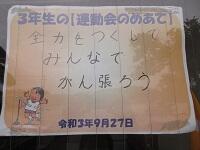 3年生の「運動会のめあて」
全力をつくして
みんなで
がん張ろう
令和3年9月27日